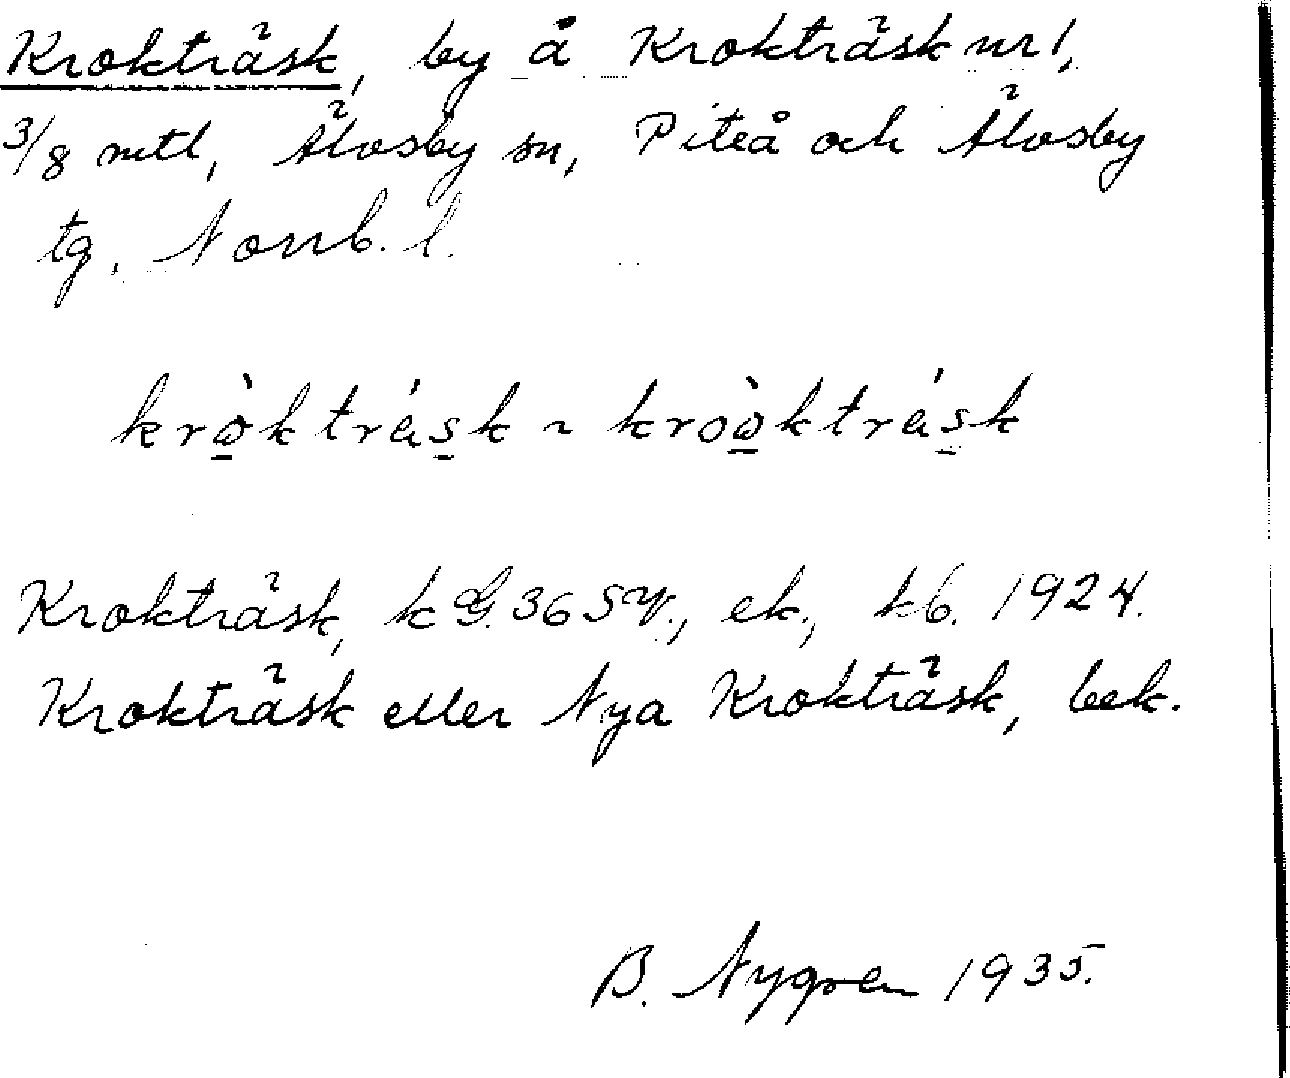 Krokträsk, by å Krokträsk nr 1,
3/8 mtl, Älvsby sn, Piteå och Älvsby
tg, Norrb. l.
krò̱ktrás̱k ~ kroò̱ktrás̱k
Krokträsk, ek., kb. 1924.
Krokträsk eller Nya Krokträsk, bek.
B. Nygren 1935.